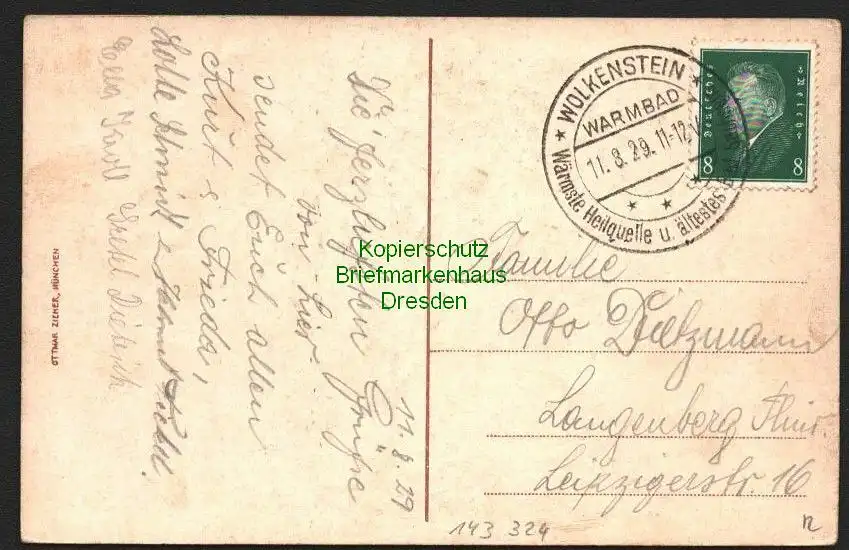 11.8.29
Die herzlichsten Grüße
von hier
sendet Euch allen
Kurt & Frieda,
Lotte Schmidt &
OTTMAR ZIEHER, MÜNCHEN
★ WOLKENSTEIN ★
WARMBAD
11.8.29.11-12V
Wärmste Heilquelle u. ältestes
Deutsches Reich
8 8
Kopierschutz
Briefmarkenhaus
Dresden
Familie
Otto Dietzmann
Langenberg Thür.
Leipzigerstr. 16
143 324
n